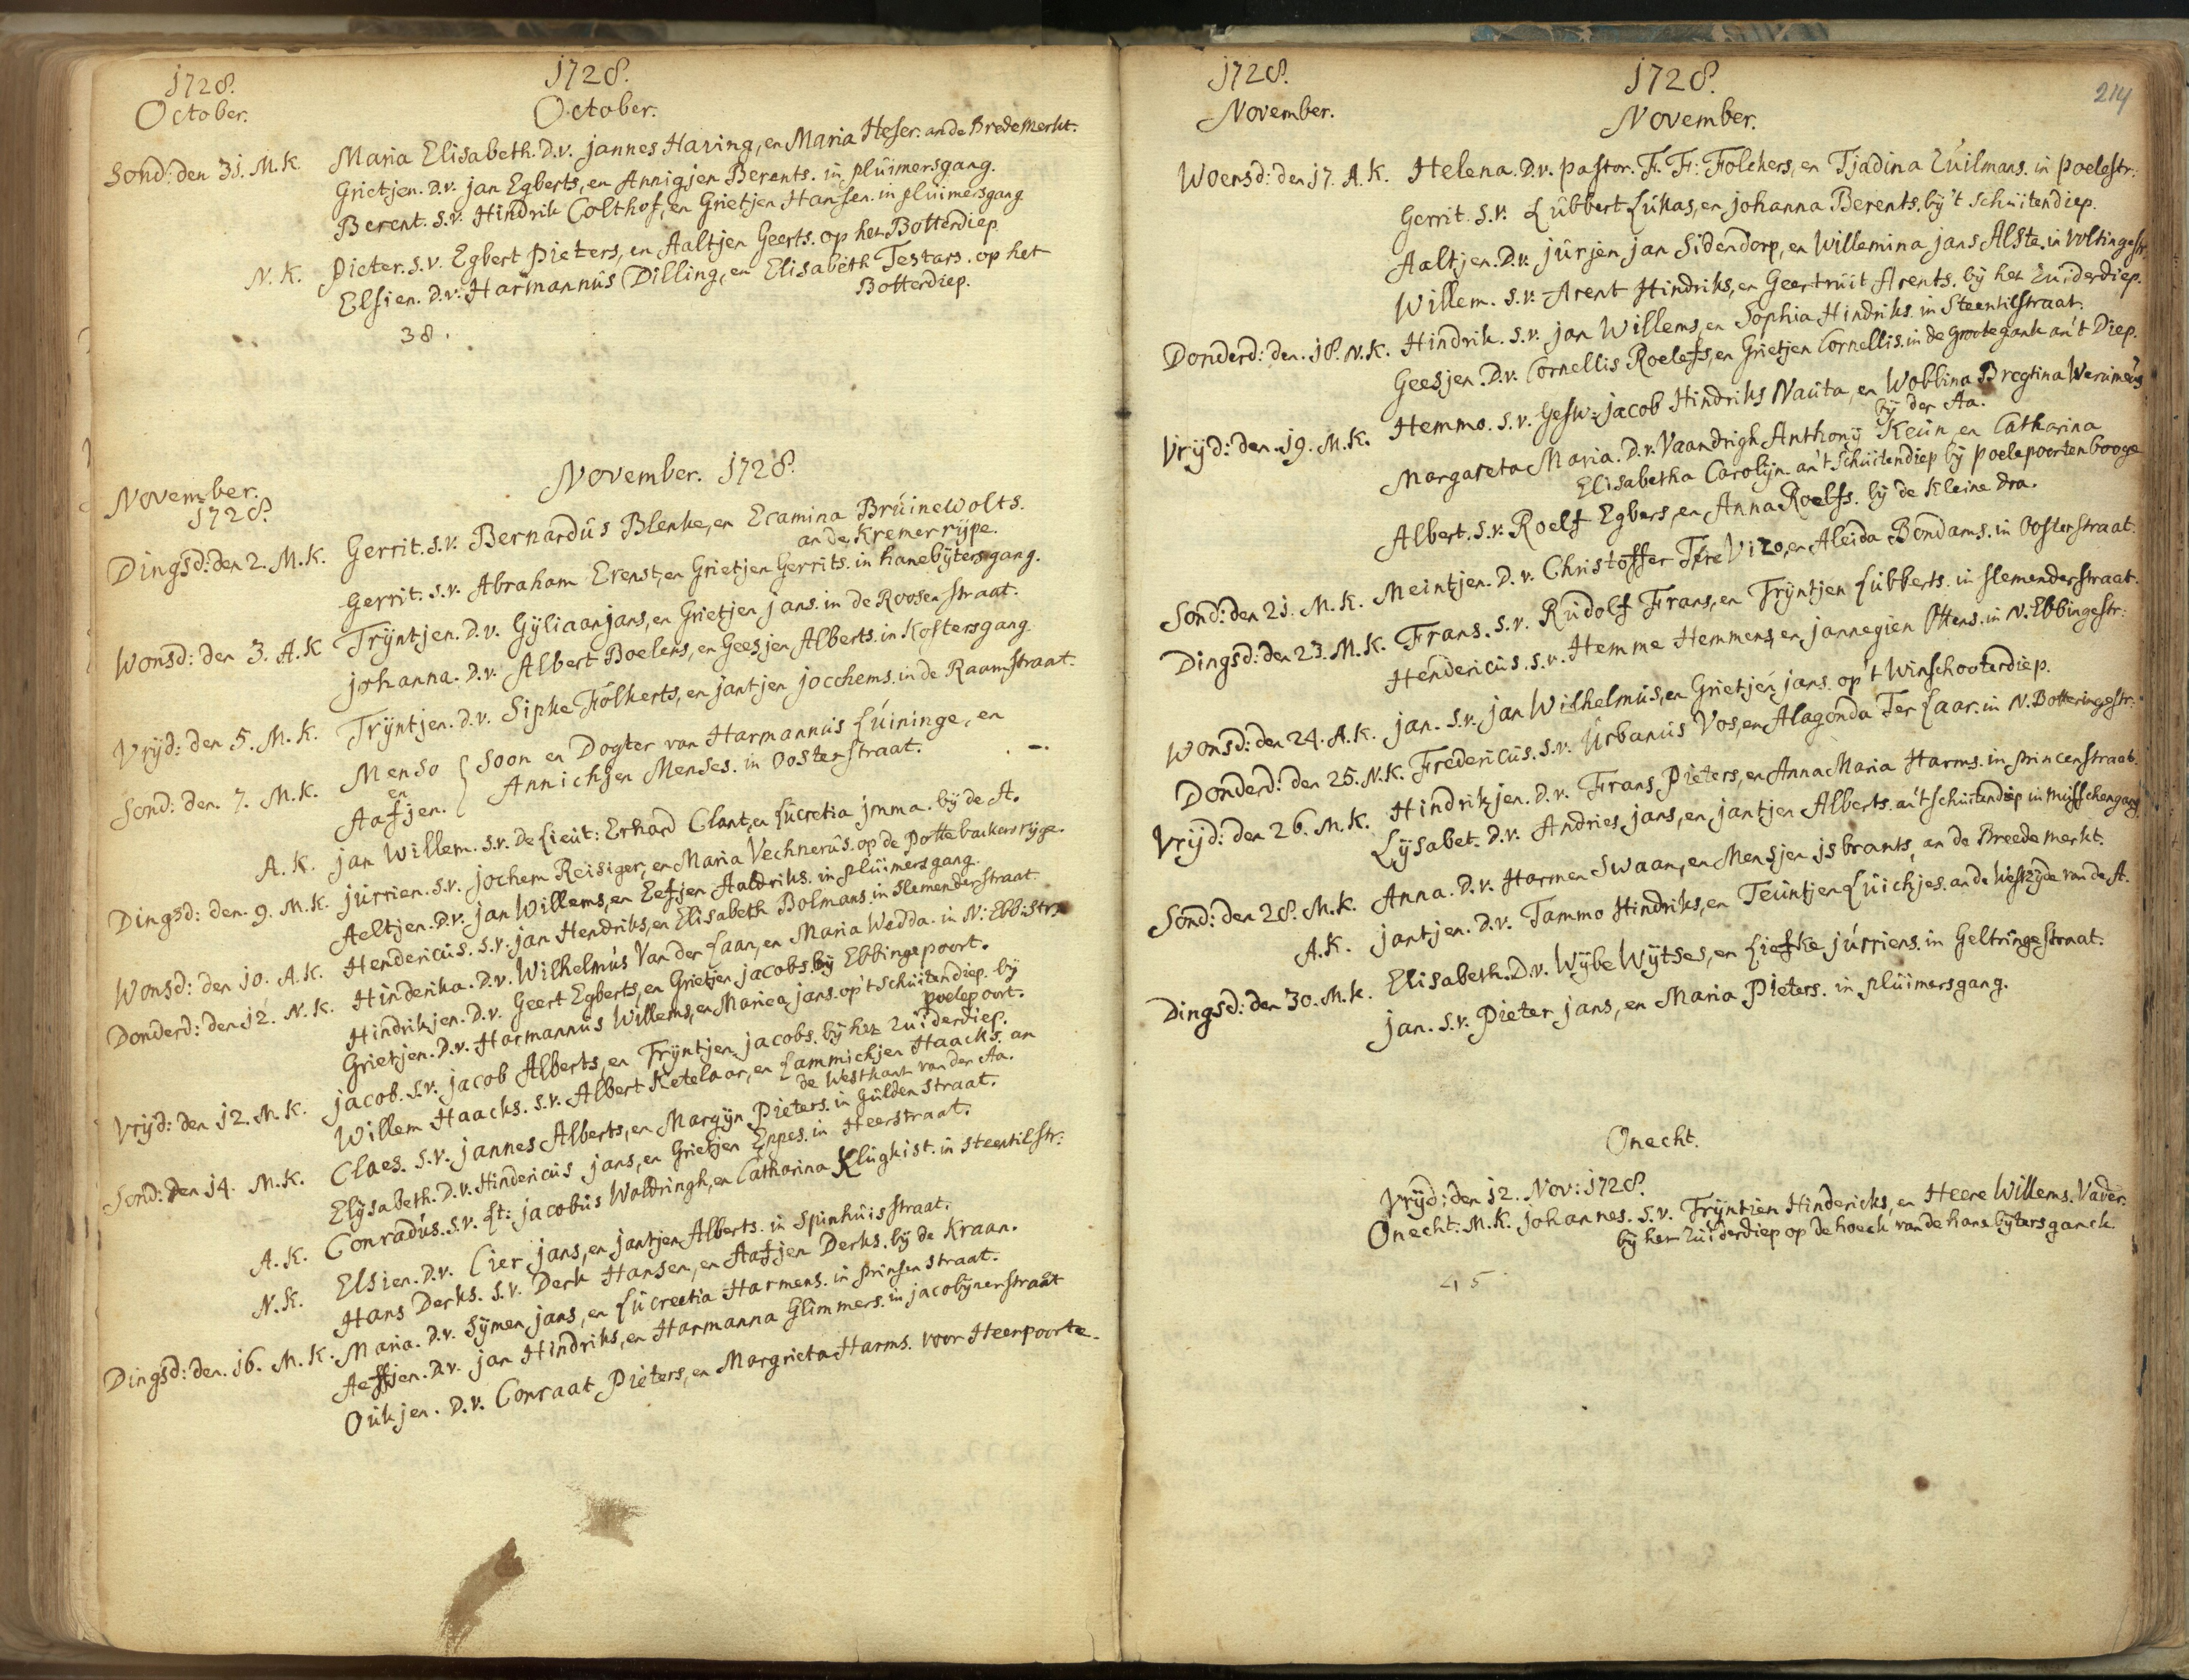 1728.
October.
1728.
October.
Sond: den 31. M.K. Maria Elisabeth. D.v. jannes Haring, en Maria Heser. an de Brede Merkt.
Grietjen. D.v. jan Egberts, en Annigjen Berents. in pluimersgang.
Berent. S.v. Hindrik Colthof, en Grietjen Hansen. in pluimersgang
N.K. Pieter. S.v. Egbert Pieters, en Aaltjen Geerts. op het Botterdiep
Elsien. D.v. Harmannus Dilling, en Elisabeth Testars. op het
Botterdiep.
38.
November.
1728.
November. 1728.
Dingsd: den 2. M.K. Gerrit. S.v. Bernardus Blenke, en Ecamina Bruinewolts.
an de Kremerrijpe.
Gerrit. S.v. Abraham Erenst, en Grietjen Gerrits. in hanebijtersgang.
Wonsd: den 3. A.K Trijntjen. D.v. Gijliaan jans, en Grietjen jans. in de Roosenstraat.
johanna. D.v. Albert Boelens, en Geesjen Alberts. in Kostersgang.
Vrijd: den 5. M.K. Trijntjen. D.v. Sipke Folkerts, en jantjen jocchems. in de Raamstraat.
Sond: den. 7. M.K. Menso { Soon en Dogter van Harmannus Luininge, en
en
Aafjen. Annichjen Menses. in Oosterstraat.
A.K. jan Willem. S.v. De Lieut: Erhard Clant, en Lucretia jmma. bij de A.
Dingsd: den. 9. M.K. jurrien. S.v. jochem Reisiger, en Maria Vechnerus. op de Pottebackersrijge.
Aeltjen. D.v. jan Willems, en Eefjen Aaldriks. in pluimersgang.
Wonsd: den 10. A.K. Hendericus. S.v. jan Hendriks, en Elisabeth Bolmans in Slemenderstraat
Donderd: den 12. N.K. Hinderika. D.v. Wilhelmus Van der Laan, en Maria Wedda. in N: Ebb: Str.
Hindrikjen. D.v. Geert Egberts, en Grietjen jacobs. bij Ebbingepoort.
Grietjen. D.v. Harmannus Willems, en Mariea jans. op't Schuitendiep. bij
poelepoort.
Vrijd: den 12. M.K. jacob. S.v. jacob Alberts, en Trijntjen jacobs. bij het Zuiderdiep.
Willem Haacks. S.v. Albert Ketelaar, en Lammichjen Haacks. an
de Westkant van der Aa.
Sond: den 14. M.K. Claes. S.v. jannes Alberts, en Margijn Pieters. in Guldenstraat.
Elijsabeth. D.v. Hindericus jans, en Grietjen Eppes. in Heerstraat.
A.K. Conradus. S.v. Lt: jacobus Woldringh, en Catharina Klugkist. in steentilstr:
N.K. Elsien. D.v. Cier jans, en jantjen Alberts. in Spinhuisstraat.
Hans Derks. S.v. Derk Hansen, en Aafjen Derks. bij de Kraan.
Dingsd: den. 16. M.K. Maria. D.v. Sijmen jans, en Lucreetia Harmens. in prinsenstraat.
Aeffjen. D.v. jan Hindriks, en Harmanna Glimmers. in jacobijnerstraat
Oukjen. D.v. Conraat Pieters, en Margrieta Harms. voor Heerpoorte.
1728.
November.
1728.
November.
214
Woensd: den 17. A.K. Helena. D.v. pastor. F. F: Folckers, en Tjadina Zuilmans. in poelestr:
Gerrit. S.v. Lubbert Lukas, en johanna Berents. bij't Schuitendiep.
Aaltjen. D.v. jurjen jan Sidendorp, en Willemina jans Alste, in Voltingestr,
Willem. S.v. Arent Hindriks, en Geertruit Arents. bij het Zuiderdiep.
Donderd: den. 18. N.K. Hindrik. S.v. jan Willems, en Sophia Hindriks. in Steentilstraat.
Geesjen. D.v. Cornellis Roelefs, en Grietjen Cornellis. in de Grotegank an't Diep.
Vrijd: den. 19. M.K. Hemmo. S.v. Gesw: jacob Hindriks Nauta, en Wobbina Bregtina Werumeus
bij der Aa.
Margareta Maria. D.v. Vaandrigh Anthonij Keun en Catharina
Elisabetha Carolijn. an't Schuitendiep bij poelepoortenbooge
Albert. S.v. Roelf Egbers, en Anna Roelfs. bij de Kleine dra.
Sond: den 21. M.K. Meintjen. D.v. Christoffer TreVizo, en Aleida Bondams. in Oosterstraat.
Dingsd: den 23. M.K. Frans. S.v. Rudolf Frans, en Trijntjen Lubberts. in slemenderstraat.
Hendericus. S.v. Hemme Hemmens, en jannegien Ottens. in N. Ebbingestr:
Wonsd: den 24. A.K. jan. S.v. jan Wilhelmus, en Grietjen jans. op't Winschooterdiep.
Donderd: den 25. N.K. Fredericus. S.v. Urbanus Vos, en Alagonda Ter Laar. in N. Botteringestr:
Vrijd: den 26. M.K. Hindrikjen. D.v. Frans Pieters, en Anna Maria Harms. in princenstraat.
Lijsabet. D.v. Andries jans, en jantjen Alberts. an't Schuitendiep in Musschengang
Sond: den 28. M.K. Anna. D.v. Harmen Swaan, en Mensjen jsbrants, an de Breede merkt.
A.K. jantjen. D.v. Tammo Hindriks, en Teuntjen Luichjes. an de Westzijde van de A.
Dingsd: den 30. M.K. Elisabeth. D.v. Wijbe Wijtses, en Liefke jurriens. in Geltringestraat.
jan. S.v. Pieter jans, en Maria Pieters. in pluimersgang.
Onecht.
Vrijd: den 12. Nov: 1728.
Onecht: M.K. johannes. S.v. Trijntien Hindericks, en Heere Willems. Vader.
bij het Zuiderdiep op de hoeck van de hane bijtersganck
45